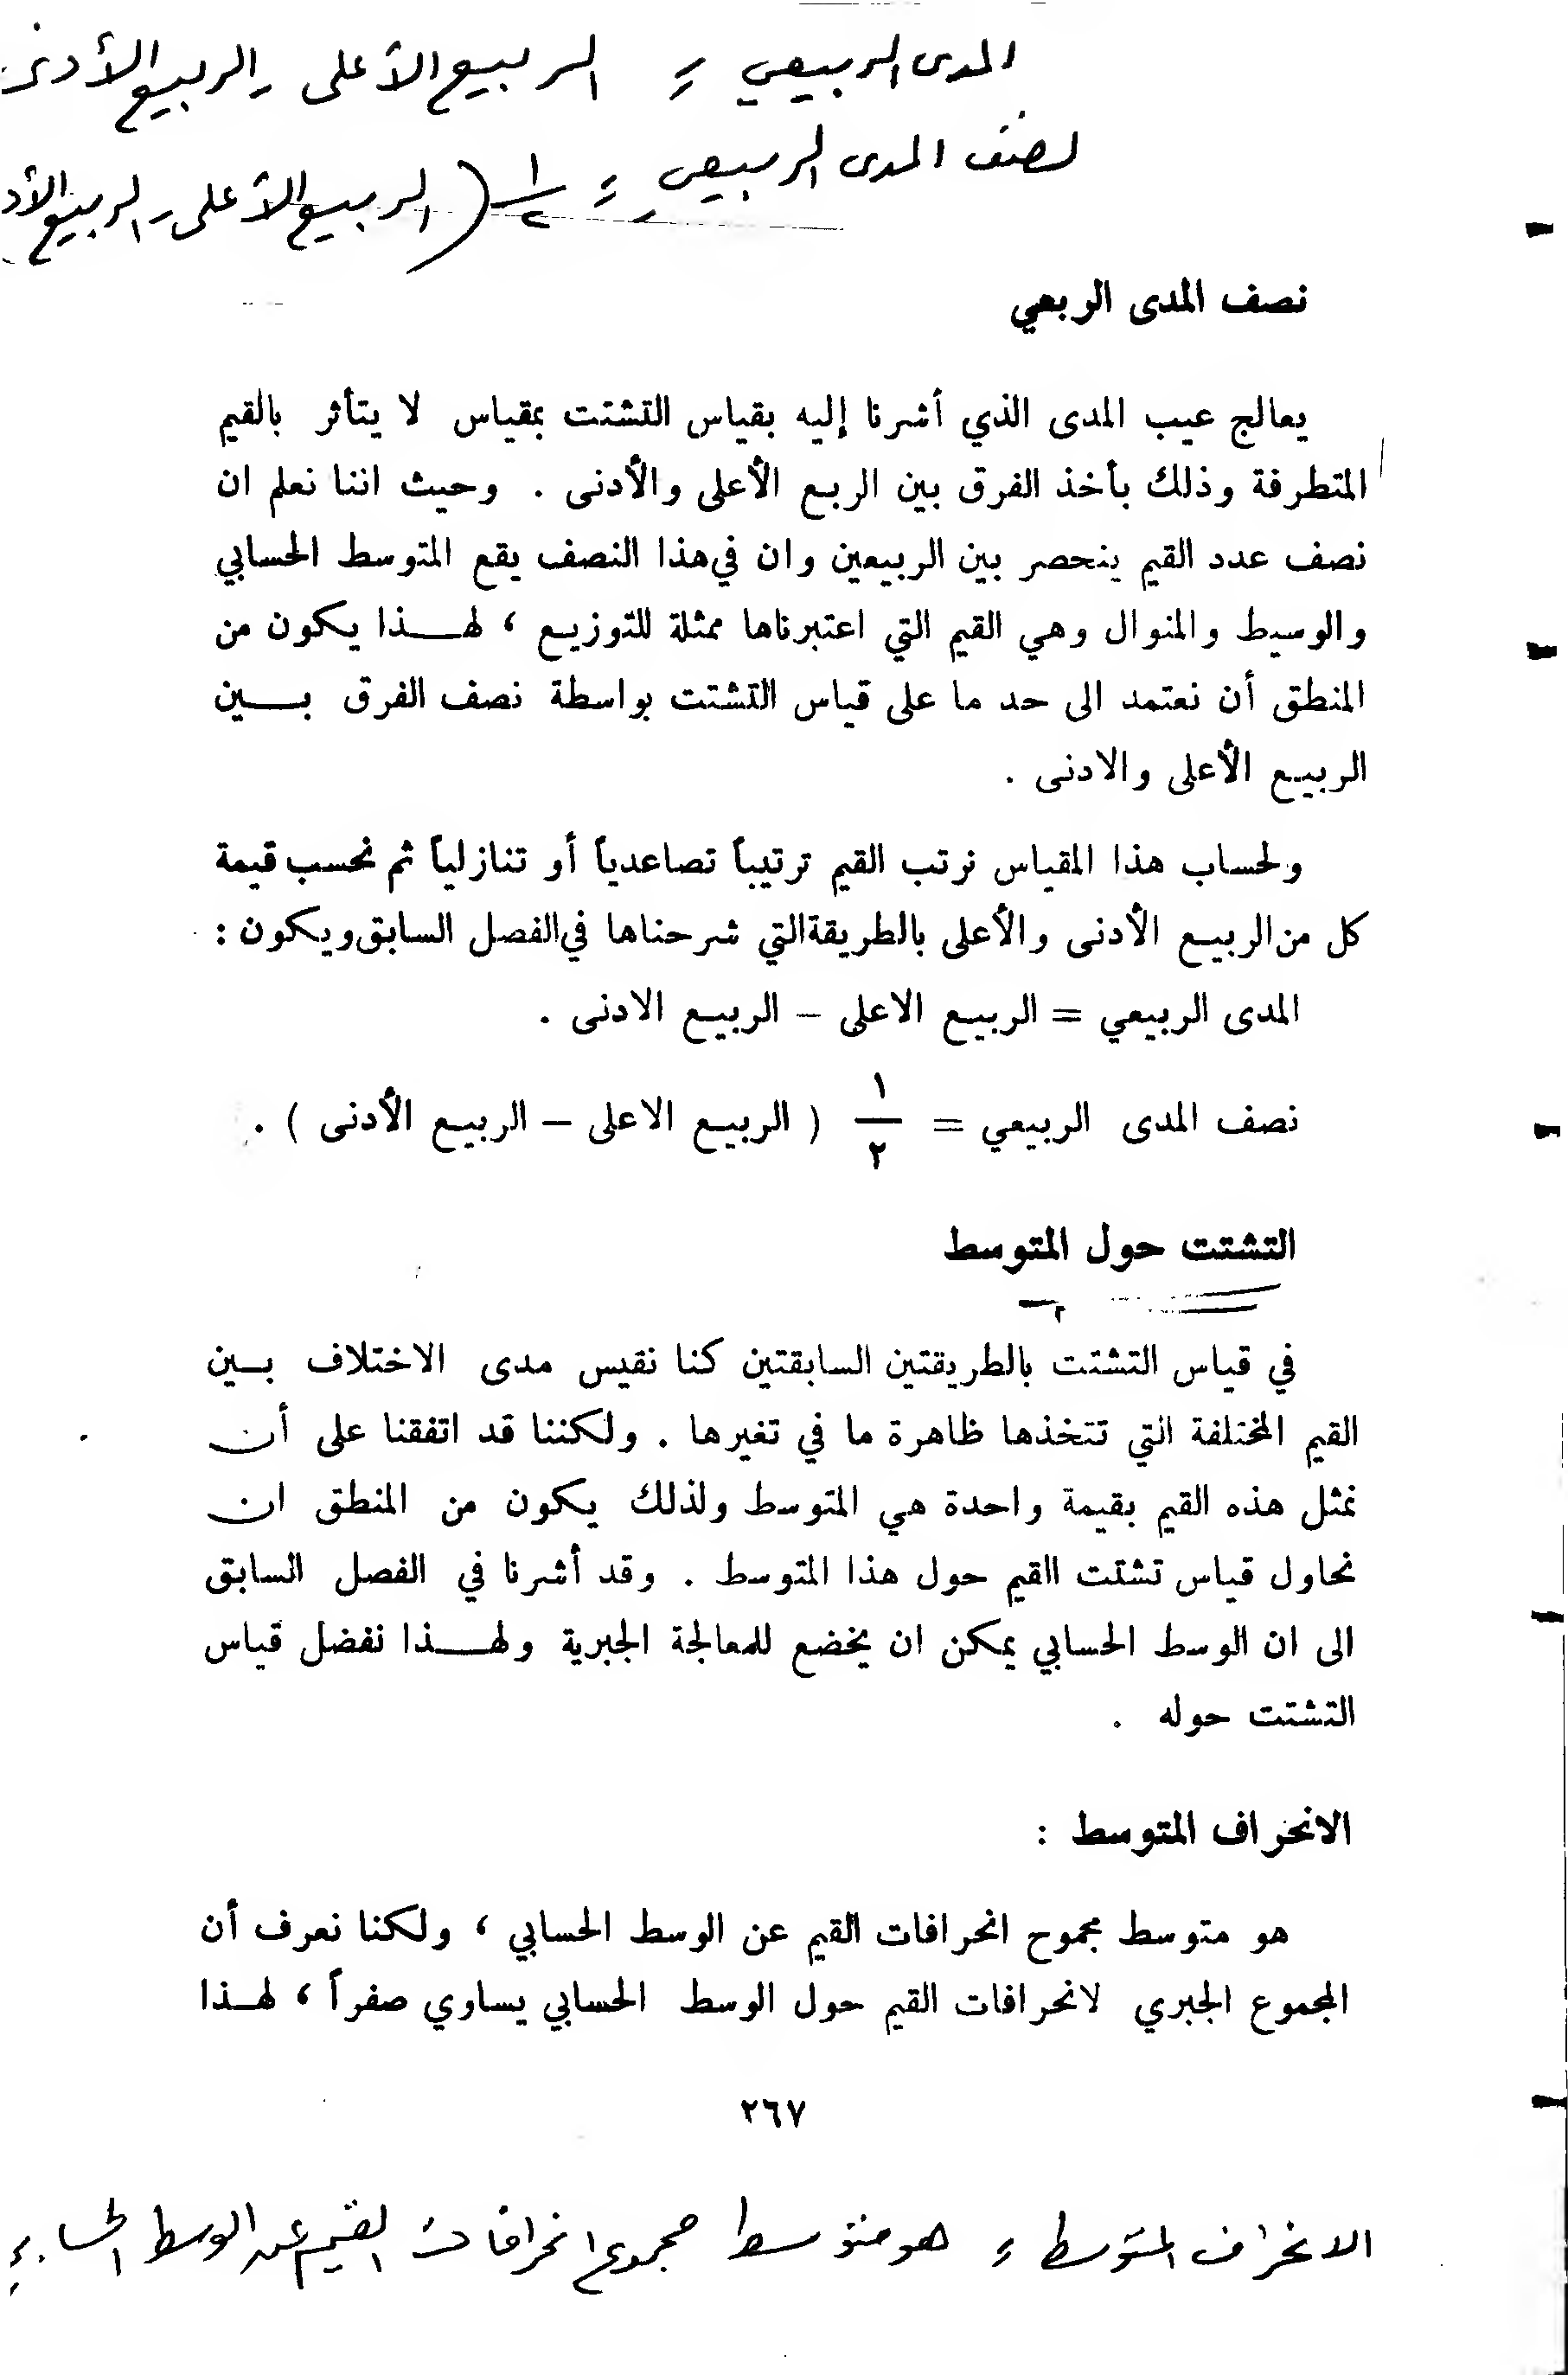 المدى الربيعي = الربيع الأعلى - الربيع الأدنى
نصف المدى الربيعي = ١/٢ ( الربيع الأعلى - الربيع الأد
نصف المدى الربعي
يعالج عيب المدى الذي أشرنا إليه بقياس التشتت بمقياس لا يتأثر بالقيم
المتطرفة وذلك بأخذ الفرق بين الربع الأعلى والأدنى . وحيث اننا نعلم ان
نصف عدد القيم ينحصر بين الربيعين وان في هذا النصف يقع المتوسط الحسابي
والوسيط والمنوال وهي القيم التي اعتبرناها ممثلة للتوزيع ، لهذا يكون من
المنطق أن نعتمد الى حد ما على قياس التشتت بواسطة نصف الفرق بين
الربيع الأعلى والادنى .
ولحساب هذا المقياس نرتب القيم ترتيباً تصاعدياً أو تنازلياً ثم نحسب قيمة
كل من الربيع الأدنى والأعلى بالطريقة التي شرحناها في الفصل السابق ويكون :
المدى الربيعي = الربيع الاعلى - الربيع الادنى .
نصف المدى الربيعي = ١/٢ ( الربيع الاعلى - الربيع الأدنى ) .
التشتت حول المتوسط
في قياس التشتت بالطريقتين السابقتين كنا نقيس مدى الاختلاف بين
القيم المختلفة التي تتخذها ظاهرة ما في تغيرها . ولكننا قد اتفقنا على أن
نمثل هذه القيم بقيمة واحدة هي المتوسط ولذلك يكون من المنطق ان
نحاول قياس تشتت القيم حول هذا المتوسط . وقد أشرنا في الفصل السابق
الى ان الوسط الحسابي يمكن ان يخضع للمعالجة الجبرية ولهذا نفضل قياس
التشتت حوله .
الانحراف المتوسط :
هو متوسط مجموح انحرافات القيم عن الوسط الحسابي ، ولكنا نعرف أن
المجموع الجبري لانحرافات القيم حول الوسط الحسابي يساوي صفراً ، لهذا
٢٦٧
الانحراف المتوسط = هو متوسط مجموع انحرافات القيم عن الوسط الحسابي